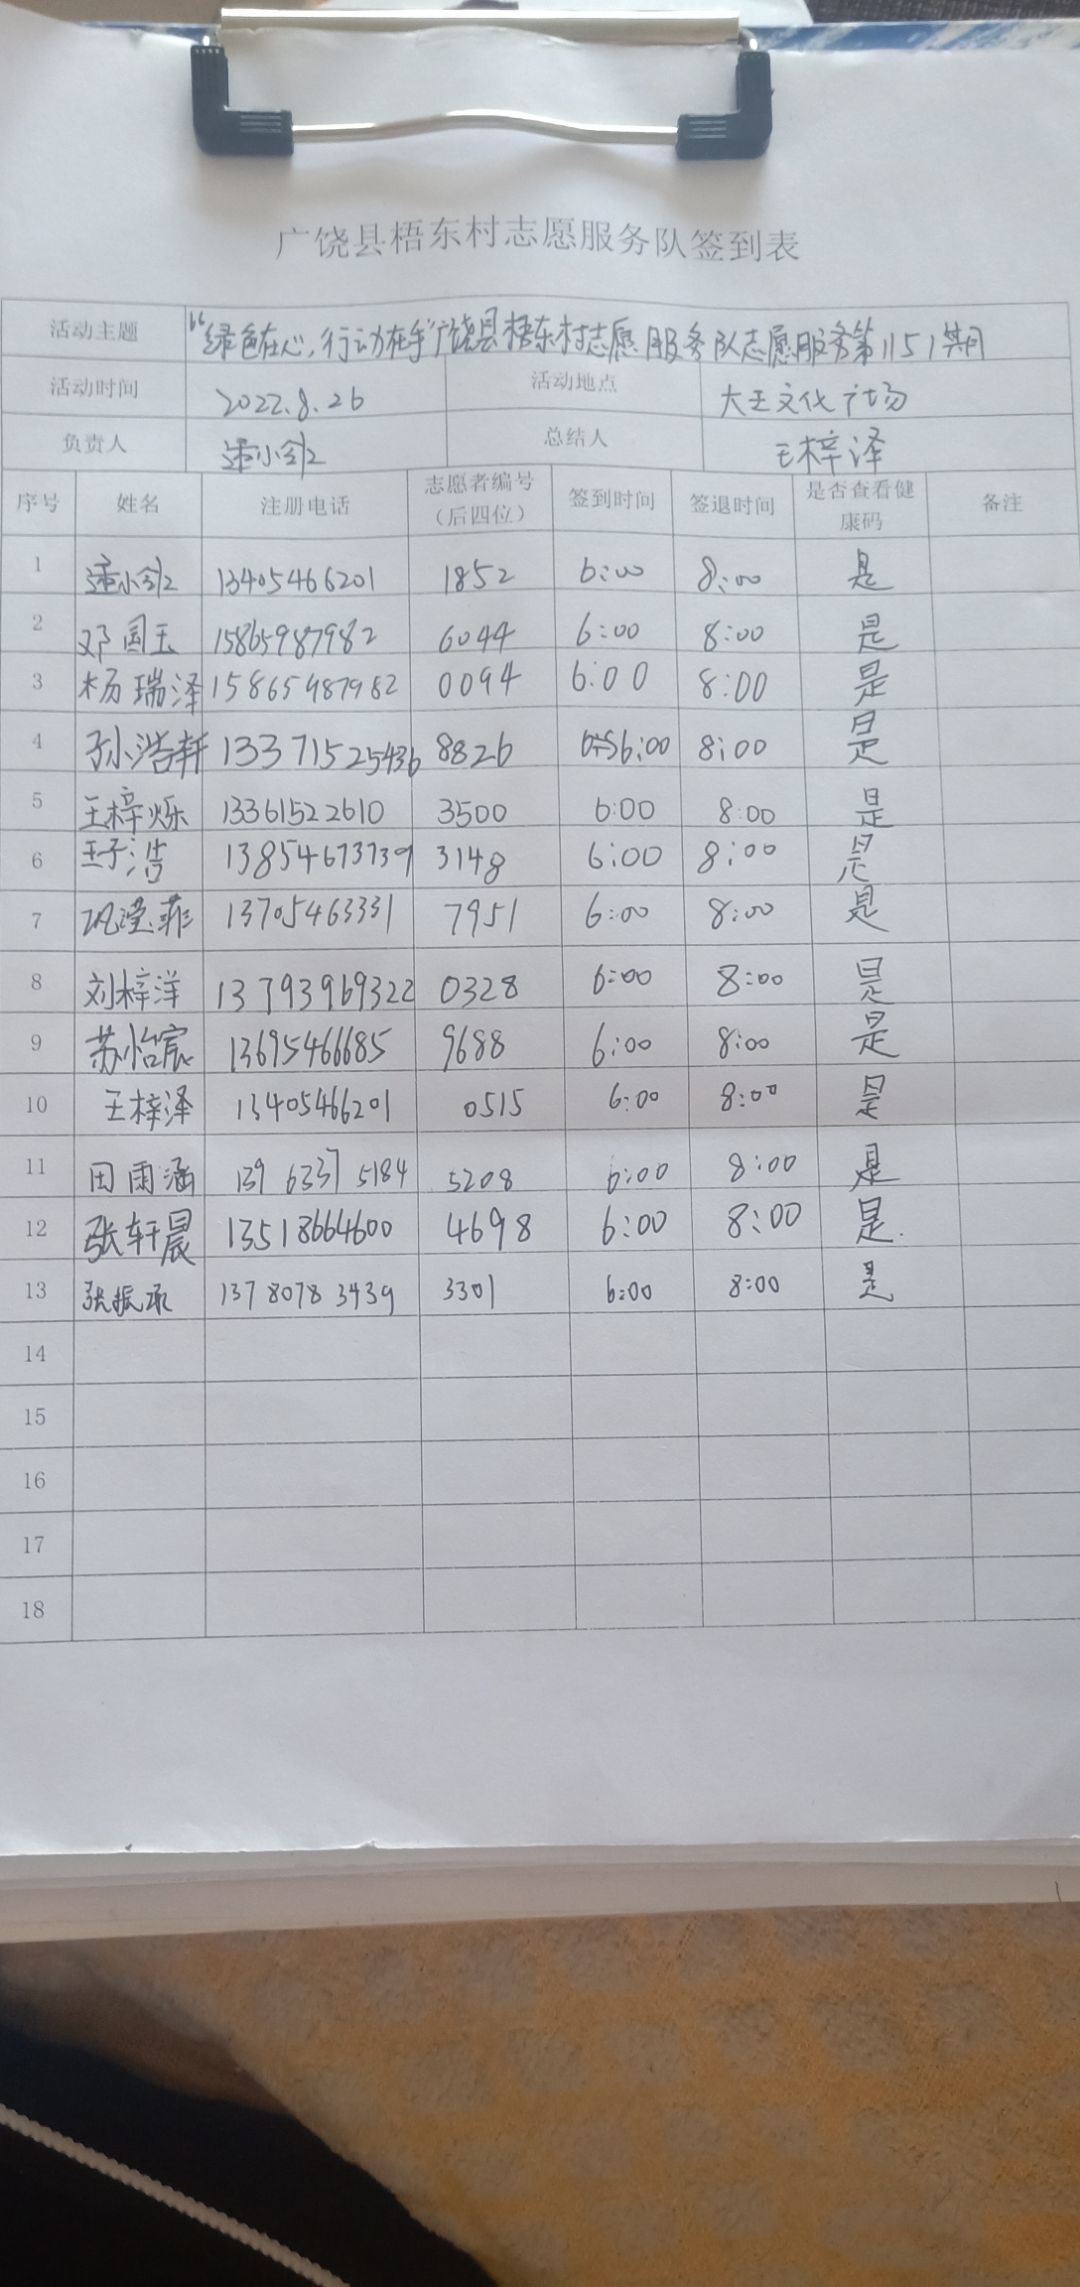 广饶县梧东村志愿服务队签到表
活动主题 “绿色在心,行动在手”广饶县梧东村志愿服务队志愿服务第1151期
活动时间 2022.8.26 活动地点 大王文化广场
负责人 小 总结人 王梓泽
序号 姓名 注册电话 志愿者编号(后四位) 签到时间 签退时间 是否查看健康码 备注
1 小 13405466201 1852 6:00 8:00 是
2 邓国玉 15865987982 6044 6:00 8:00 是
3 杨瑞泽 15865987982 0094 6:00 8:00 是
4 孙浩轩 13371525436 8826 6:00 8:00 是
5 王梓烁 13361522610 3500 6:00 8:00 是
6 王子浩 13854673739 3148 6:00 8:00 是
7 巩滢菲 13705463331 7951 6:00 8:00 是
8 刘梓洋 13793969322 0328 6:00 8:00 是
9 苏怡宸 13695466685 9688 6:00 8:00 是
10 王梓泽 13405466201 0515 6:00 8:00 是
11 田雨涵 139 6337 5184 5208 6:00 8:00 是
12 张轩晨 13518664600 4698 6:00 8:00 是.
13 张振承 137 8078 3439 3301 6:00 8:00 是
14
15
16
17
18